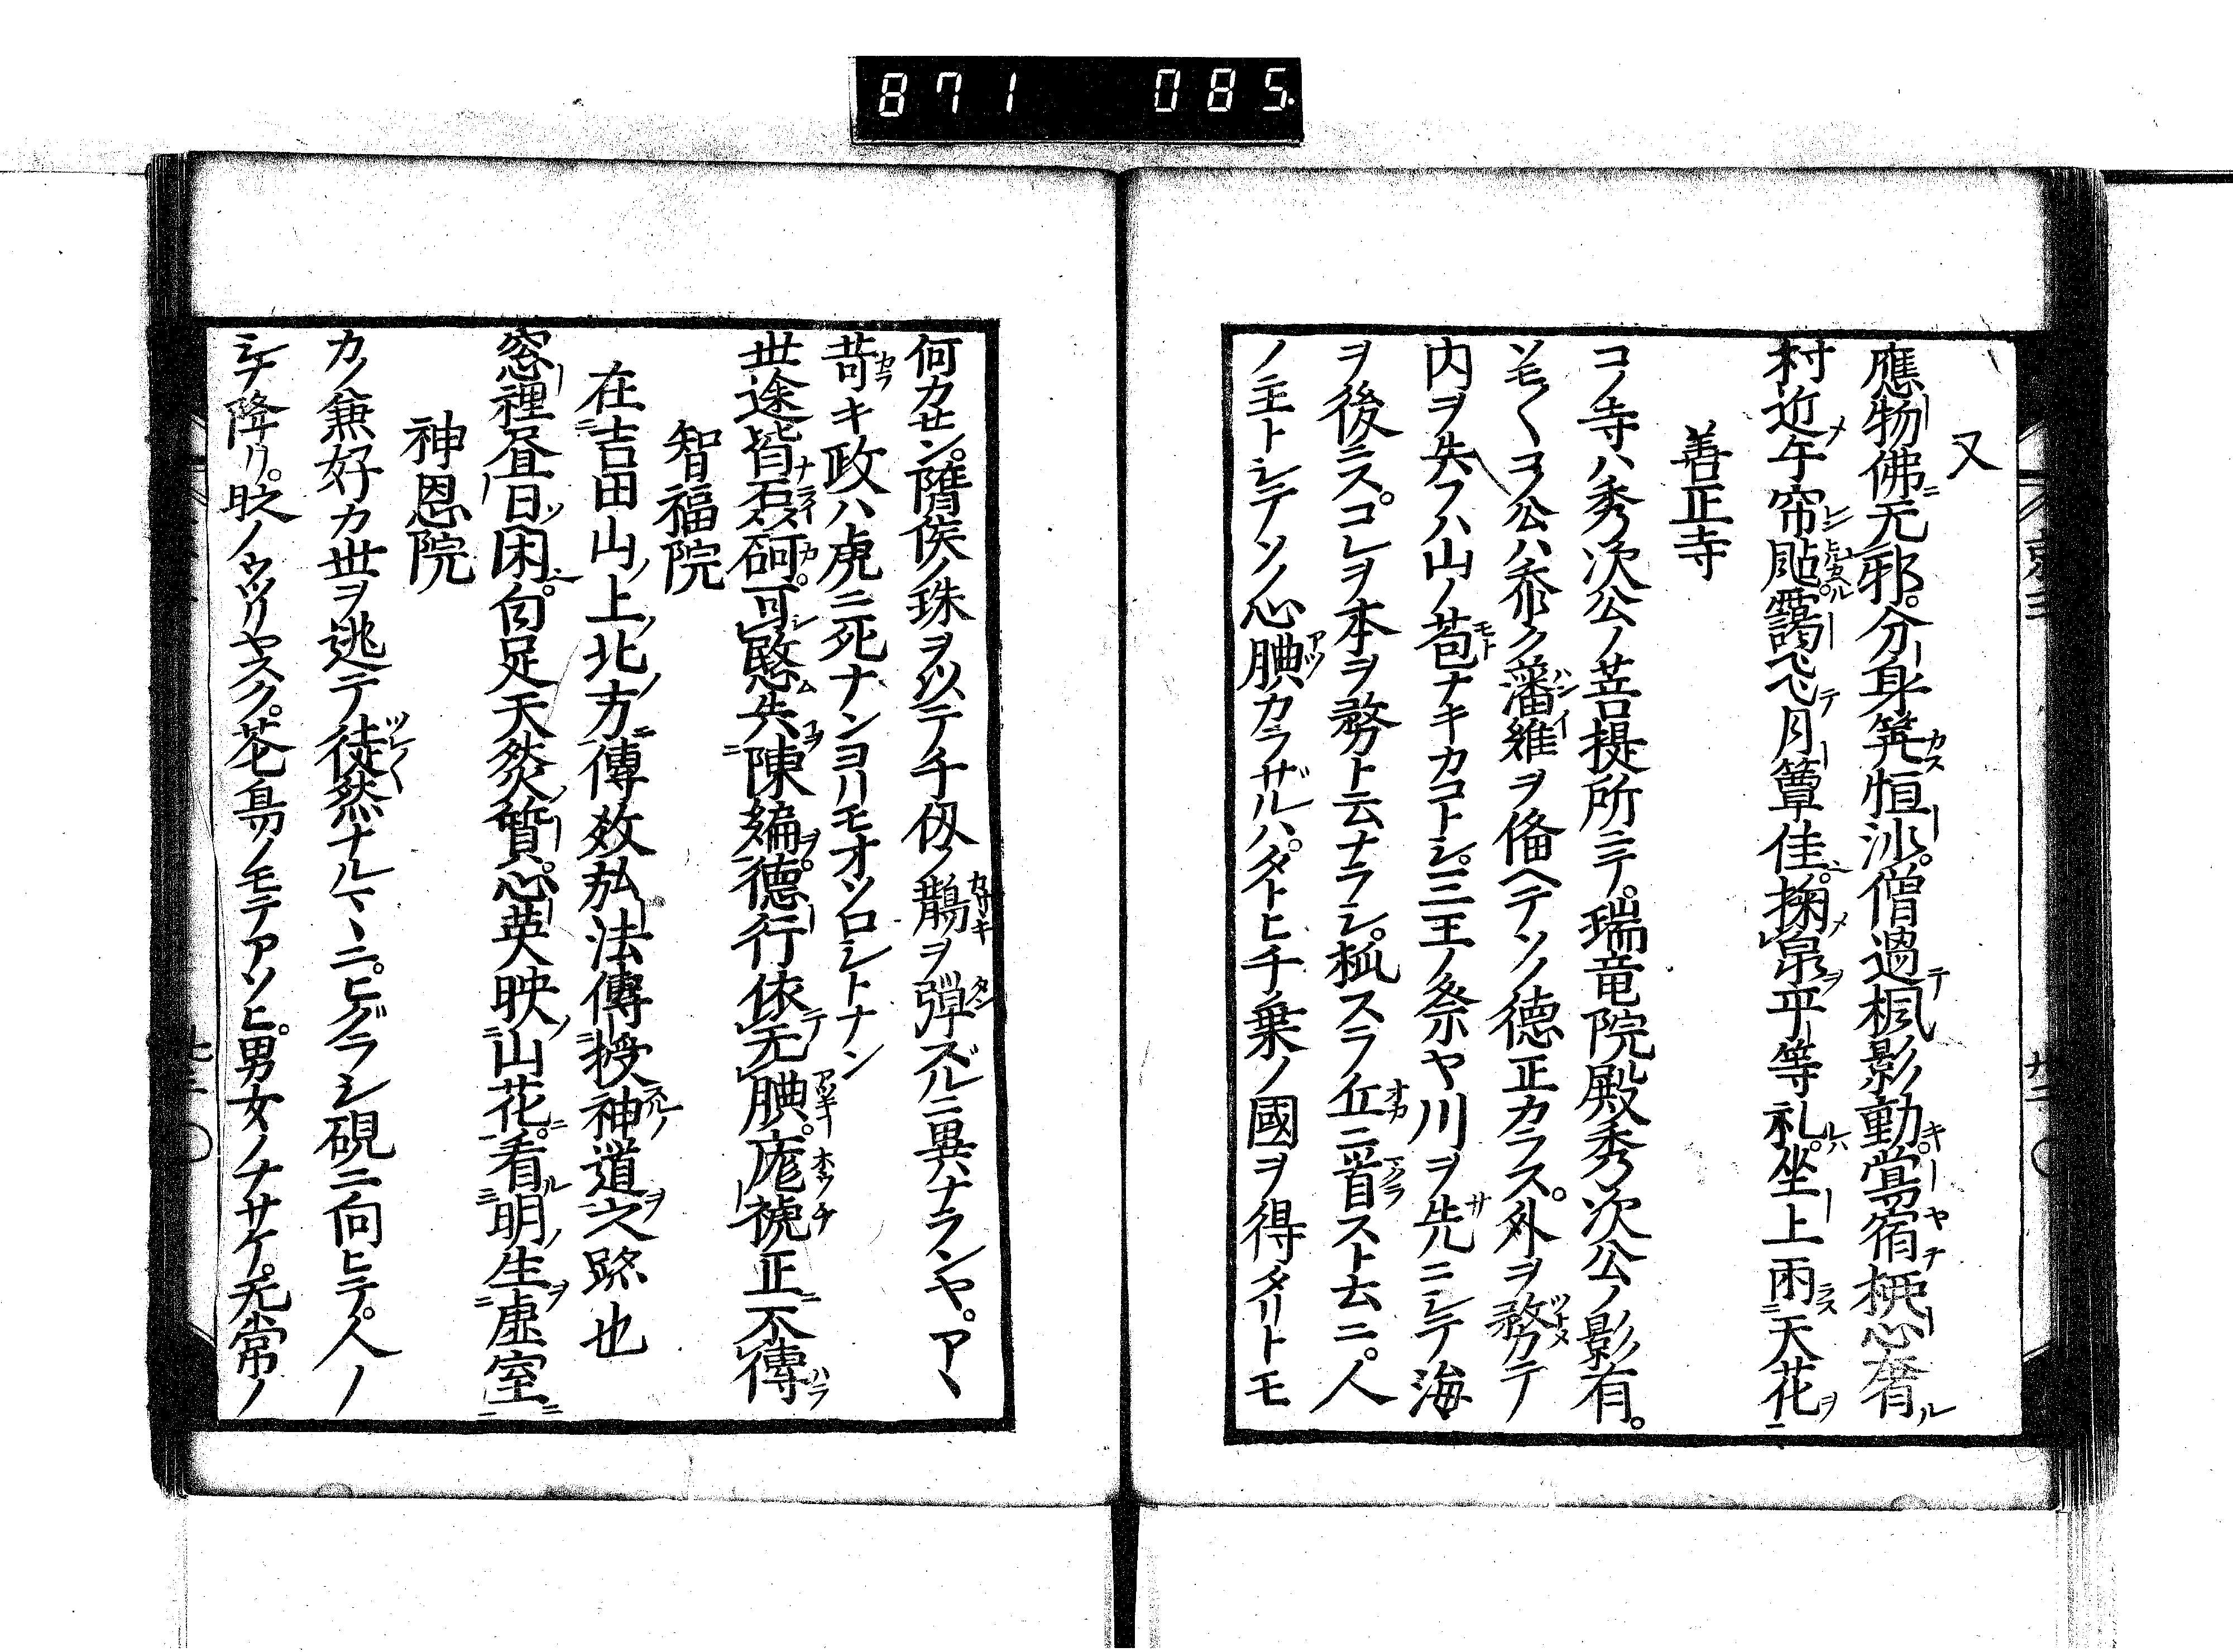 871 085.
又
應物佛无邪。分身筭恒沙。僧過楓影動。鴬宿柄心奢
村近午帘颭。靄飛月簟佳。掬泉平等礼。坐上雨天花
善正寺
コノ寺ハ秀次公ノ菩提所ニテ。瑞竜院殿秀次公ノ影有。
ソモ〱ヲ公ハ忝ク藩維ヲ俻ヘテソノ徳正カラス。外ヲ務テ
内ヲ失フハ山ノ苞ナキカコトシ。三王ノ祭ヤ川ヲ先ニシテ海
ヲ後ニス。コレヲ本ヲ務ト云ナラシ。狐スラ丘ニ首スト云ニ。人
ノ主トシテソノ心腆カラザルハ。タトヒ千乗ノ國ヲ得タリトモ
何カセン。隋侯ノ珠ヲ以テ千仭ノ鵲ヲ弾ズルニ異ナランヤ。アヽ
苛キ政ハ虎ニ死ナンヨリモオソロシトナン
世途皆磊砢。可愍失陳編。徳行依无腆。庬褫正不傳
智福院
在吉田山ノ上北ノ方傳敎弘法傳授神道之跡也
窓裡昼日閑。自足天然質。心英映山花。看明生虚室
神恩院
カノ兼好カ世ヲ逃テ徒然ナルマヽニ。ヒグラシ硯ニ向ヒテ。人ノ
シテ降リ。時ノウツリヤスク。花鳥ノモテアソヒ。男女ノナサケ。无常ノ